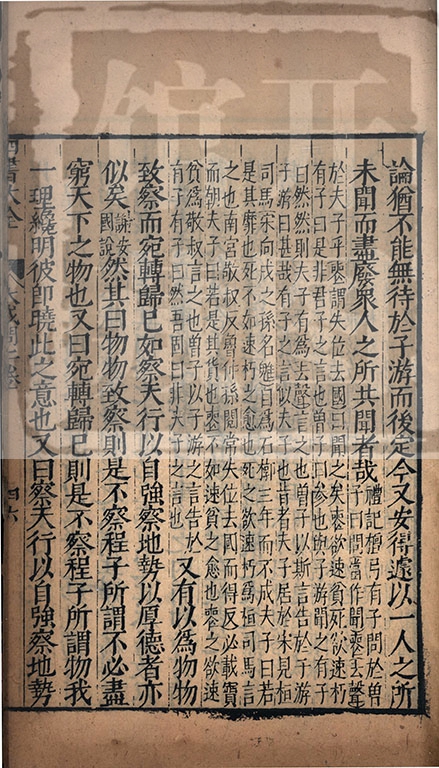 論猶不能無待於子游而後定今又安得遽以一人之所
未聞而盡廢衆人之所共聞者哉
禮記檀弓有子問於曾
子曰問當作聞喪去聲
於夫子乎喪謂失位去國曰聞之矣喪欲速貧死欲速朽
有子曰是非君子之言也曾子曰參也與子游聞之有子
曰然然則夫子有為去聲言之也曾子以斯言告於子游
子游曰甚哉有子之言似夫子也昔者夫子居於宋見桓
司馬宋向戌之孫名魋自為石槨三年而不成夫子曰若
是其靡也死不如速朽之愈也死之欲速朽為桓司馬言
之也南宮敬叔反魯仲孫閱常失位去國而得反必載寶
而朝夫子曰若是其貨也喪不如速貧之愈也喪之欲速
貧為敬叔言之也曾子以子游之言告於
有子有子曰然吾固曰非夫子之言也
又有以為物物
致察而宛轉歸已如察天行以自強察地勢以厚德者亦
似矣
謝安
國說
然其曰物物致察則是不察程子所謂不必盡
窮天下之物也又曰宛轉歸已則是不察程子所謂物我
一理纔明彼即曉此之意也又曰察天行以自強察地勢
四六